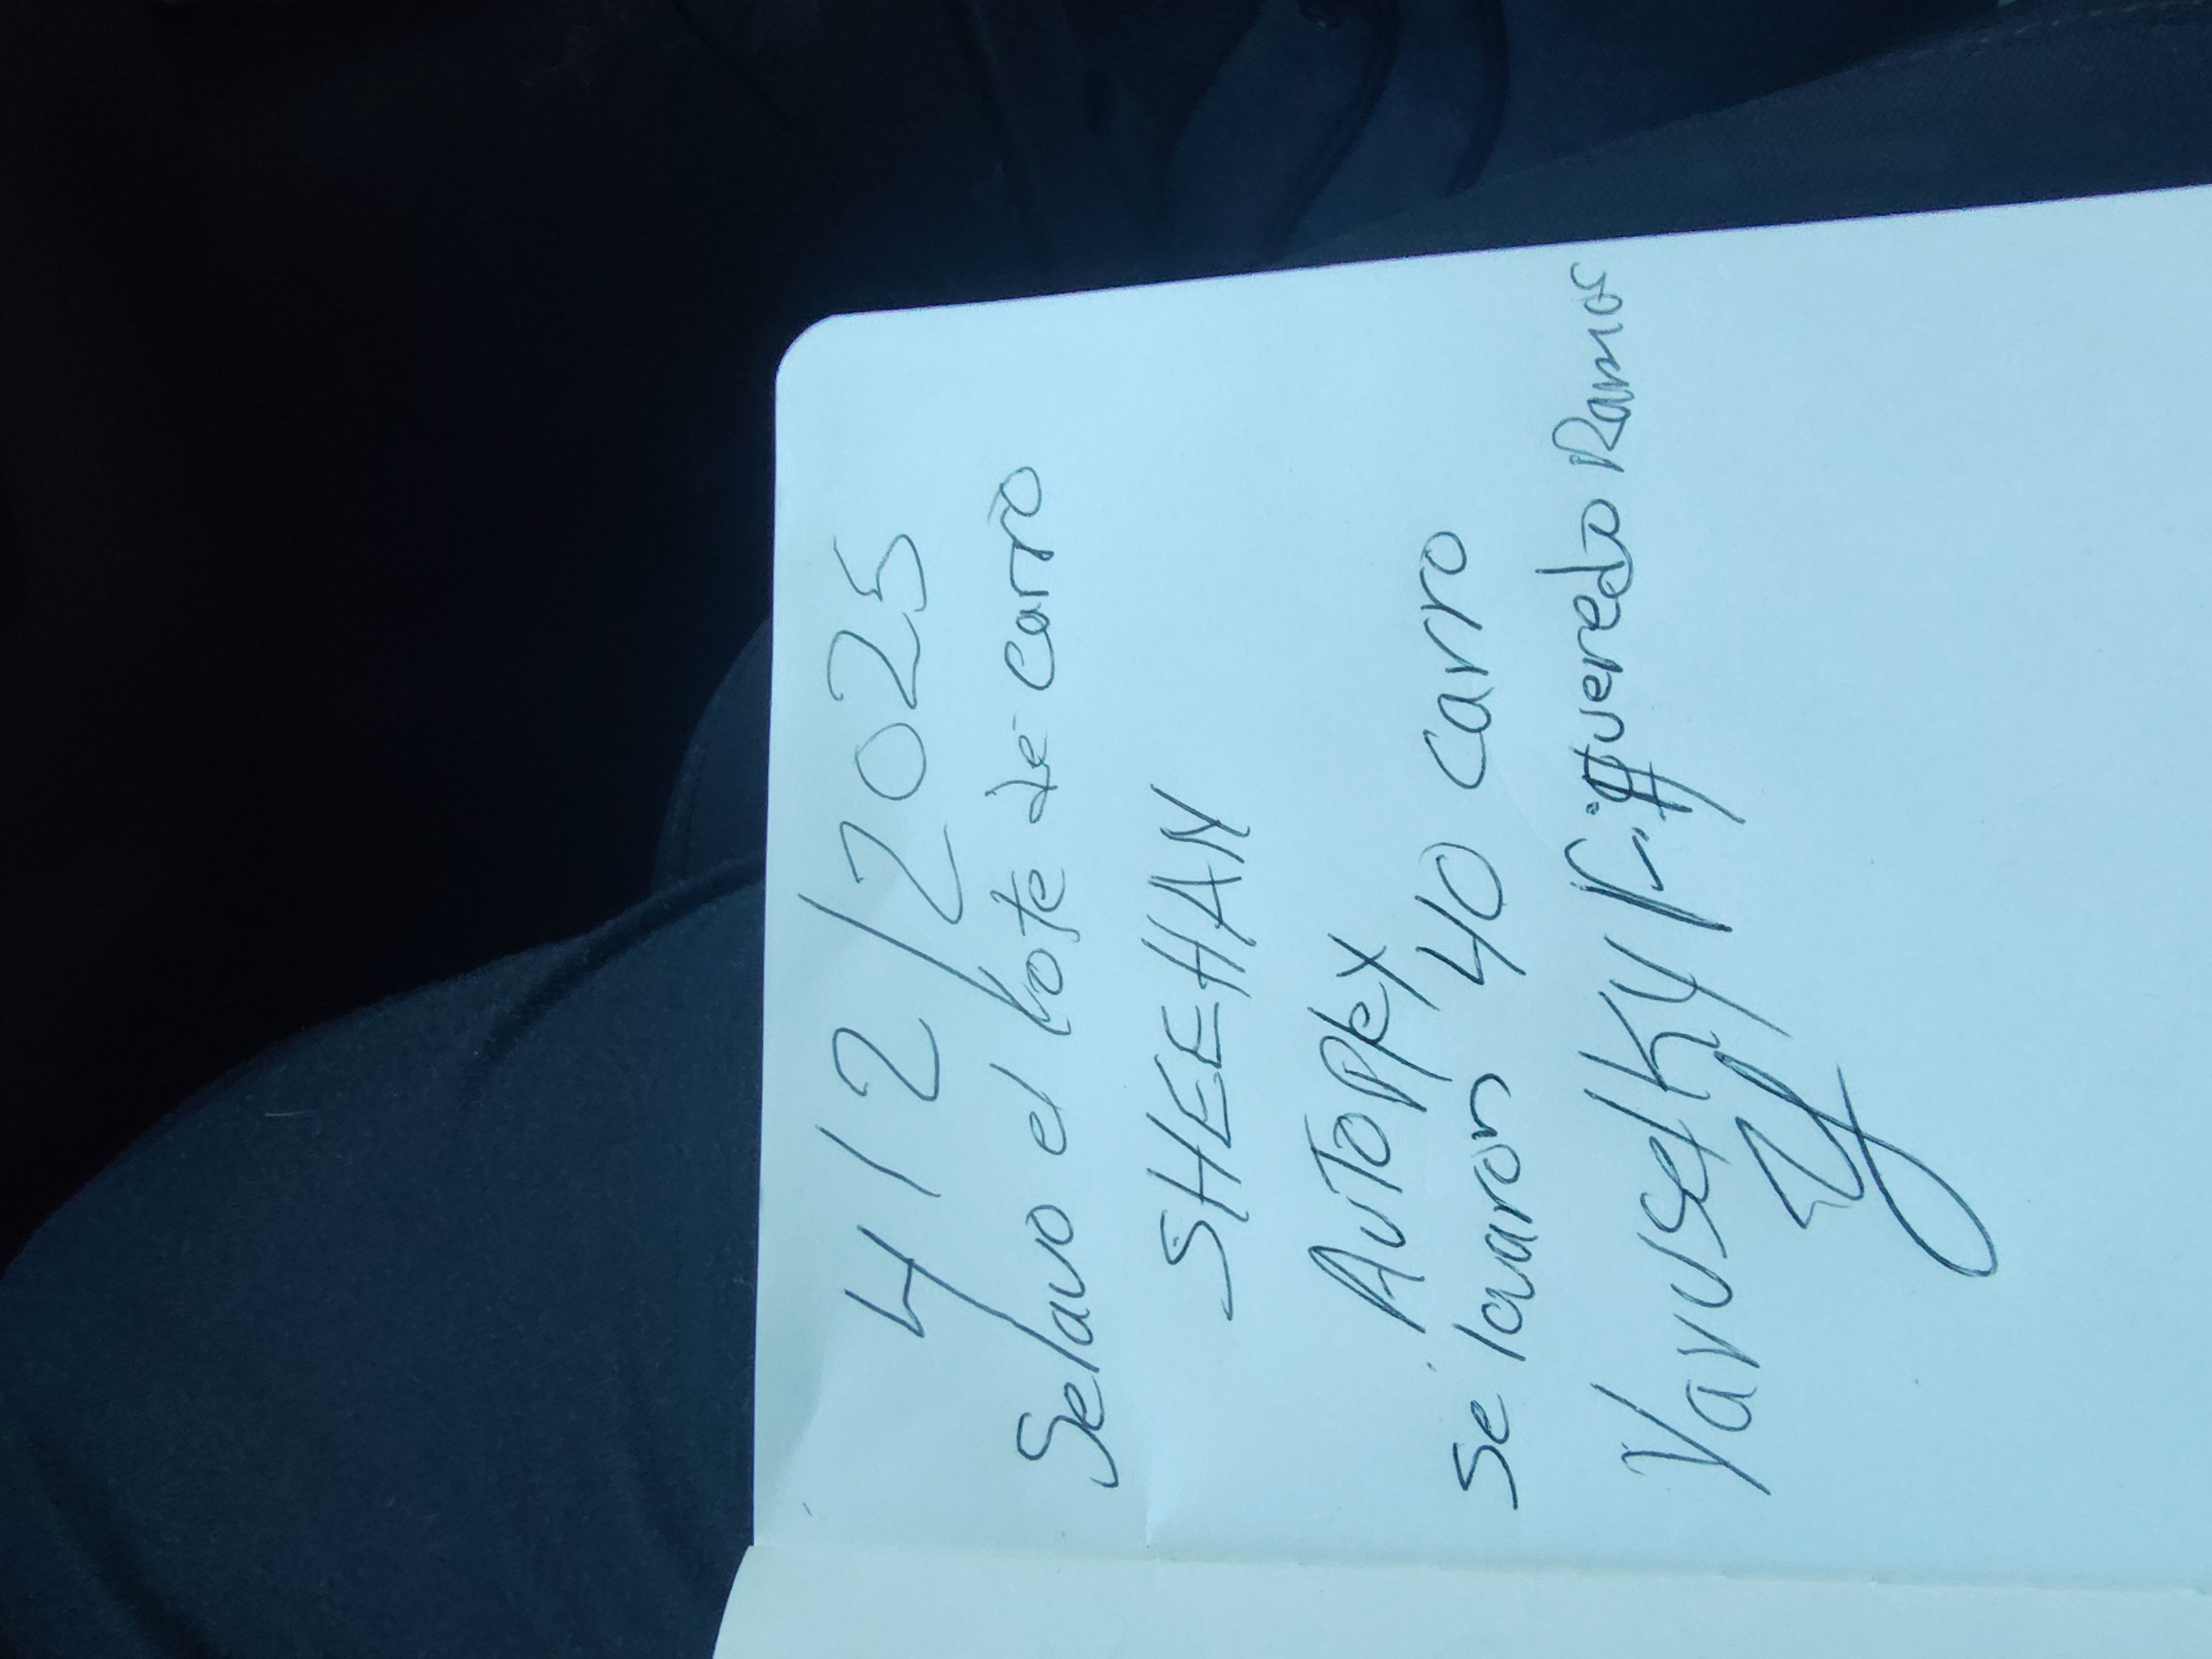 4/12/2025
Se lavo el lote de carro
SHEEHAN
AuToPlex
Se lavaron 40 Carro
Yavuselky Figueredo Ramos